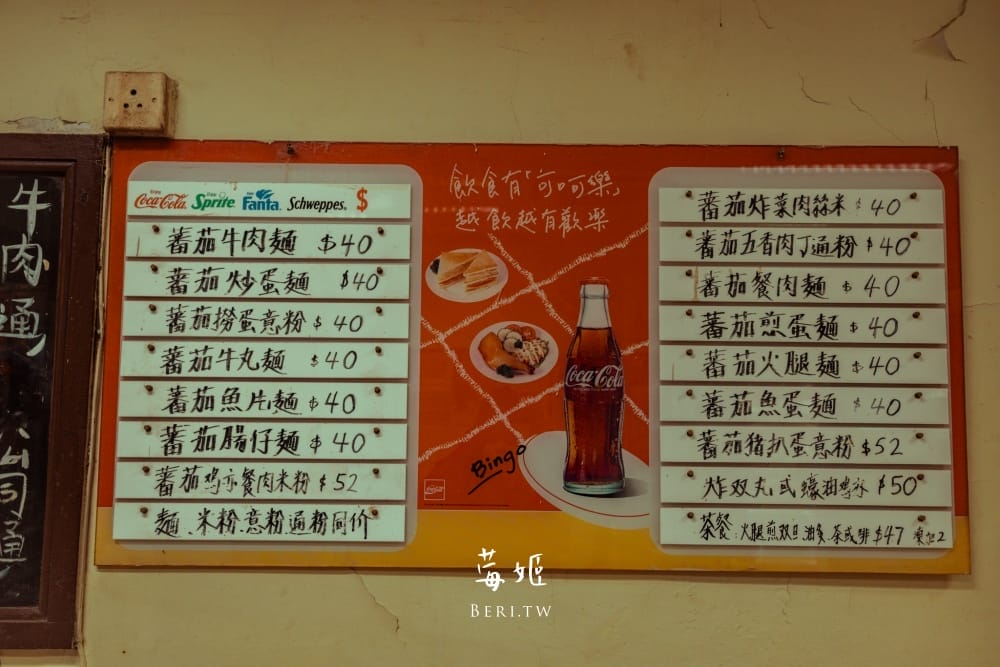 牛肉通
公司通
Enjoy Coca-Cola Sprite Fanta Schweppes $
蕃茄牛肉麵 $40
蕃茄炒蛋麵 $40
蕃茄撈蛋意粉 $40
蕃茄牛丸麵 $40
蕃茄魚片麵 $40
蕃茄腸仔麵 $40
蕃茄鸡亦餐肉米粉 $52
麵、米粉、意粉、通粉同价
飲食有「可口可樂」
越飲越有歡樂
Coca-Cola
Bingo
蕃茄炸菜肉絲米 $40
蕃茄五香肉丁通粉 $40
蕃茄餐肉麵 $40
蕃茄煎蛋麵 $40
蕃茄火腿麵 $40
蕃茄魚蛋麵 $40
蕃茄猪扒蛋意粉 $52
炸双丸或 $50
茶餐：火腿煎双旦，油多，茶或啡 $47
莓姬
BERI.TW